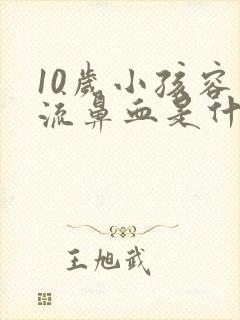 10歲小孩容
流鼻血是什
王旭武